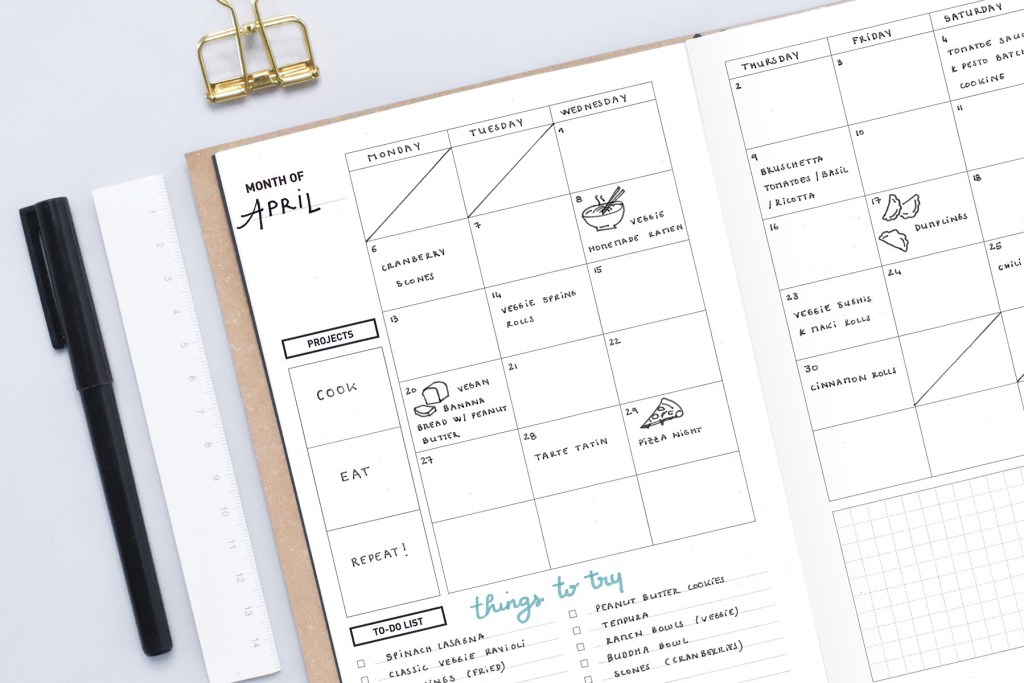 MONTH OF
APRIL
MONDAY
TUESDAY
WEDNESDAY
1
6
CRANBERRY
SCONES
7
8
VEGGIE
HOMEMADE RAMEN
13
14
VEGGIE SPRING
ROLLS
15
20
VEGAN
BANANA
BREAD W/ PEANUT
BUTTER
21
22
27
28
TARTE TATIN
29
PIZZA NIGHT
PROJECTS
COOK
EAT
REPEAT!
TO-DO LIST
things to try
SPINACH LASAGNA
CLASSIC VEGGIE RAVIOLI
(FRIED)
PEANUT BUTTER COOKIES
TEMPURA
RAMEN BOWLS (VEGGIE)
BUDDHA BOWL
SCONES (CRANBERRIES)
THURSDAY
FRIDAY
SATURDAY
2
3
4
TOMATOE
& PESTO BATCH
COOKING
9
BRUSCHETTA
TOMATOES / BASIL
/ RICOTTA
10
11
16
17
DUMPLINGS
18
23
VEGGIE SUSHIS
& MAKI ROLLS
24
25
CHILI
30
CINNAMON ROLLS
1
2
3
4
5
6
7
8
9
10
11
12
13
14